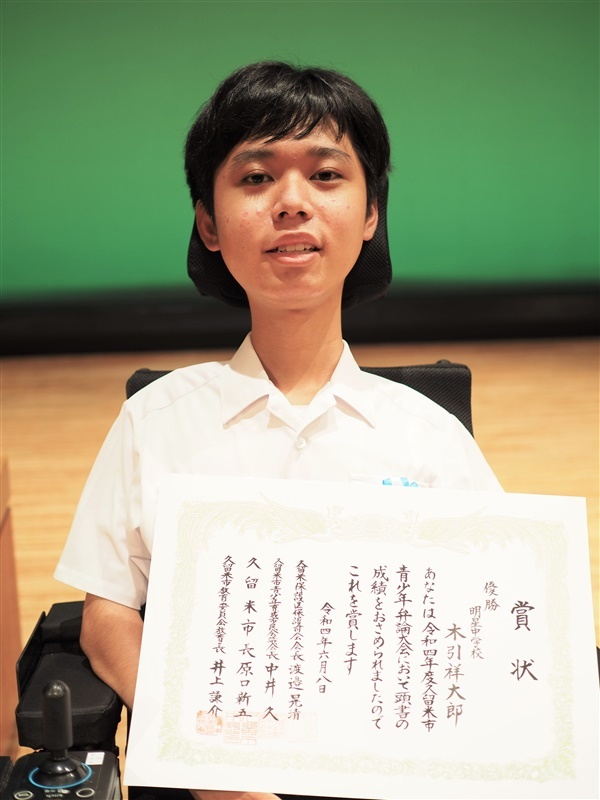 賞状
優勝
明星中学校
木引祥太郎
あなたは令和四年度久留米市
青少年弁論大会において頭書の
成績をおさめられましたので
これを賞します
令和四年六月八日
会長 渡邉晃清
会長 中井久
久留米市長 原口新五
久留米市教育委員会教育長 井上謙介